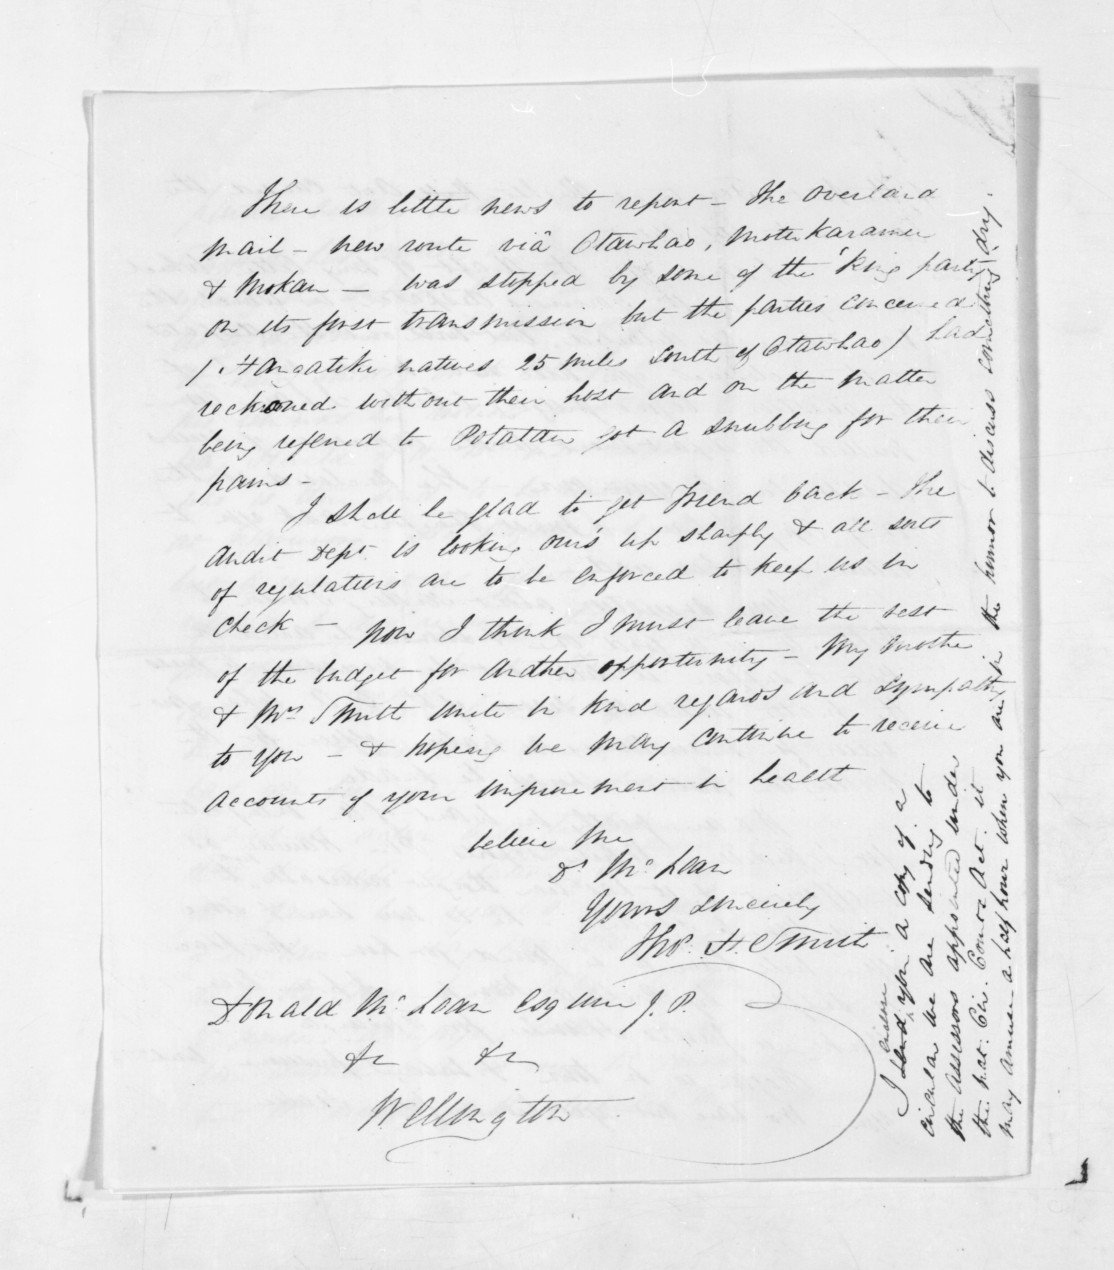 There is little news to report – The overland
mail – new route viâ Otawhao, Motukaramu
& Mokau – was stopped by some of the 'King party
on its first transmission but the parties concerned
/. Hangatiki natives 25 miles South of Otawhao/ had
reckoned without their host and on the matter
being referred to Potatau got a snubbing for their
pains –
I shall be glad to get Friend back – The
Audit Dept. is looking ours up sharply & all sorts
of regulations are to be enforced to keep us in
check – Now I think I must leave the rest
of the budget for another opportunity – My mother
& Mrs Smith unite in kind regards and sympathy
to you – & hoping we may continue to receive
accounts of your improvement in health
believe me
Dr McLean
Yours sincerely
Thos. H. Smith
Donald McLean Esquire J.P.
&c &c
Wellington
I send you a copy of a
circular we are sending to
the assessors appointed under
the Nat. Cir. Courts Act. it
may amuse a half hour when you are in the humor to discuss something dry.